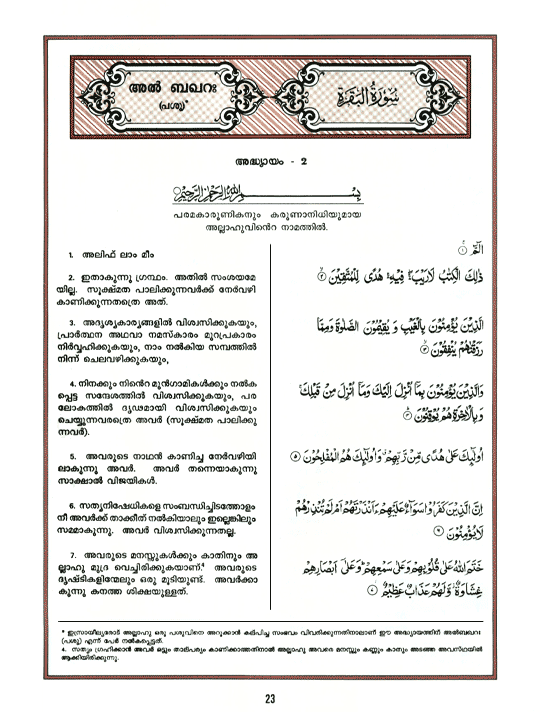 അൽ ബഖറഃ
(പശു)*
سُورَةُ البَقَرَةِ
അദ്ധ്യായം - 2
بِسْمِ اللهِ الرَّحْمٰنِ الرَّحِيْمِ
പരമകാരുണികനും കരുണാനിധിയുമായ
അല്ലാഹുവിൻെറ നാമത്തിൽ.
1. അലിഫ് ലാം മീം
2. ഇതാകുന്നു ഗ്രന്ഥം. അതിൽ സംശയമേ
യില്ല. സൂക്ഷ്മത പാലിക്കുന്നവർക്ക് നേർവഴി
കാണിക്കുന്നതത്രെ അത്.
3. അദൃശ്യകാര്യങ്ങളിൽ വിശ്വസിക്കുകയും,
പ്രാർത്ഥന അഥവാ നമസ്കാരം മുറപ്രകാരം
നിർവ്വഹിക്കുകയും, നാം നൽകിയ സമ്പത്തിൽ
നിന്ന് ചെലവഴിക്കുകയും,
4. നിനക്കും നിൻെറ മുൻഗാമികൾക്കും നൽക
പ്പെട്ട സന്ദേശത്തിൽ വിശ്വസിക്കുകയും, പര
ലോകത്തിൽ ദൃഢമായി വിശ്വസിക്കുകയും
ചെയ്യുന്നവരത്രെ അവർ (സൂക്ഷ്മത പാലിക്കു
ന്നവർ).
5. അവരുടെ നാഥൻ കാണിച്ച നേർവഴിയി
ലാകുന്നു അവർ. അവർ തന്നെയാകുന്നു
സാക്ഷാൽ വിജയികൾ.
6. സത്യനിഷേധികളെ സംബന്ധിച്ചിടത്തോളം
നീ അവർക്ക് താക്കീത് നൽകിയാലും ഇല്ലെങ്കിലും
സമമാകുന്നു. അവർ വിശ്വസിക്കുന്നതല്ല.
7. അവരുടെ മനസ്സുകൾക്കും കാതിനും അ
ല്ലാഹു മുദ്ര വെച്ചിരിക്കുകയാണ്.⁴ അവരുടെ
ദൃഷ്ടികളിന്മേലും ഒരു മൂടിയുണ്ട്. അവർക്കാ
കുന്നു കനത്ത ശിക്ഷയുള്ളത്.
الٓمّٓ ۝١
ذٰلِكَ الْكِتٰبُ لَارَيْبَ ۛ فِيْهِ ۛ هُدًى لِّلْمُتَّقِيْنَ ۝٢
الَّذِيْنَ يُؤْمِنُوْنَ بِالْغَيْبِ وَ يُقِيْمُوْنَ الصَّلٰوةَ وَمِمَّا
رَزَقْنٰهُمْ يُنْفِقُوْنَ ۝٣
وَالَّذِيْنَ يُؤْمِنُوْنَ بِمَآ اُنْزِلَ اِلَيْكَ وَمَآ اُنْزِلَ مِنْ قَبْلِكَ ۚ
وَ بِالْاٰخِرَةِ هُمْ يُوْقِنُوْنَ ۝٤
اُولٰٓئِكَ عَلٰى هُدًى مِّنْ رَّبِّهِمْ ۙ وَاُولٰٓئِكَ هُمُ الْمُفْلِحُوْنَ ۝٥
اِنَّ الَّذِيْنَ كَفَرُوْا سَوَآءٌ عَلَيْهِمْ ءَاَنْذَرْتَهُمْ اَمْ لَمْ تُنْذِرْهُمْ
لَا يُؤْمِنُوْنَ ۝٦
خَتَمَ اللهُ عَلٰى قُلُوْبِهِمْ وَعَلٰى سَمْعِهِمْ ۭ وَعَلٰٓى اَبْصَارِهِمْ
غِشَاوَةٌ ۡ وَّلَهُمْ عَذَابٌ عَظِيْمٌ ۝٧
* ഇസ്രായീല്യരോട് അല്ലാഹു ഒരു പശുവിനെ അറുക്കാൻ കല്പിച്ച സംഭവം വിവരിക്കുന്നതിനാലാണ് ഈ അദ്ധ്യായത്തിന് അൽബഖറഃ
(പശു) എന്ന് പേർ നൽകപ്പെട്ടത്.
4. സത്യം ഗ്രഹിക്കാൻ അവർ ഒട്ടും താല്പര്യം കാണിക്കാത്തതിനാൽ അല്ലാഹു അവരെ മനസ്സും കണ്ണും കാതും അടഞ്ഞ അവസ്ഥയിൽ
ആക്കിയിരിക്കുന്നു.
23